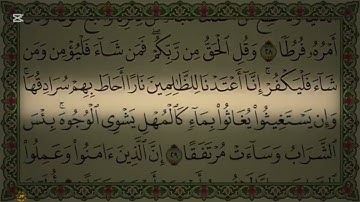 أَمْرُهُۥ فُرُطًا ٢٨ وَقُلِ ٱلْحَقُّ مِن رَّبِّكُمْ ۖ فَمَن شَآءَ فَلْيُؤْمِن وَمَن
شَآءَ فَلْيَكْفُرْ ۚ إِنَّآ أَعْتَدْنَا لِلظَّٰلِمِينَ نَارًا أَحَاطَ بِهِمْ سُرَادِقُهَا ۚ
وَإِن يَسْتَغِيثُوا۟ يُغَاثُوا۟ بِمَآءٍ كَٱلْمُهْلِ يَشْوِى ٱلْوُجُوهَ ۚ بِئْسَ
ٱلشَّرَابُ وَسَآءَتْ مُرْتَفَقًا ٢٩ إِنَّ ٱلَّذِينَ ءَامَنُوا۟ وَعَمِلُوا۟